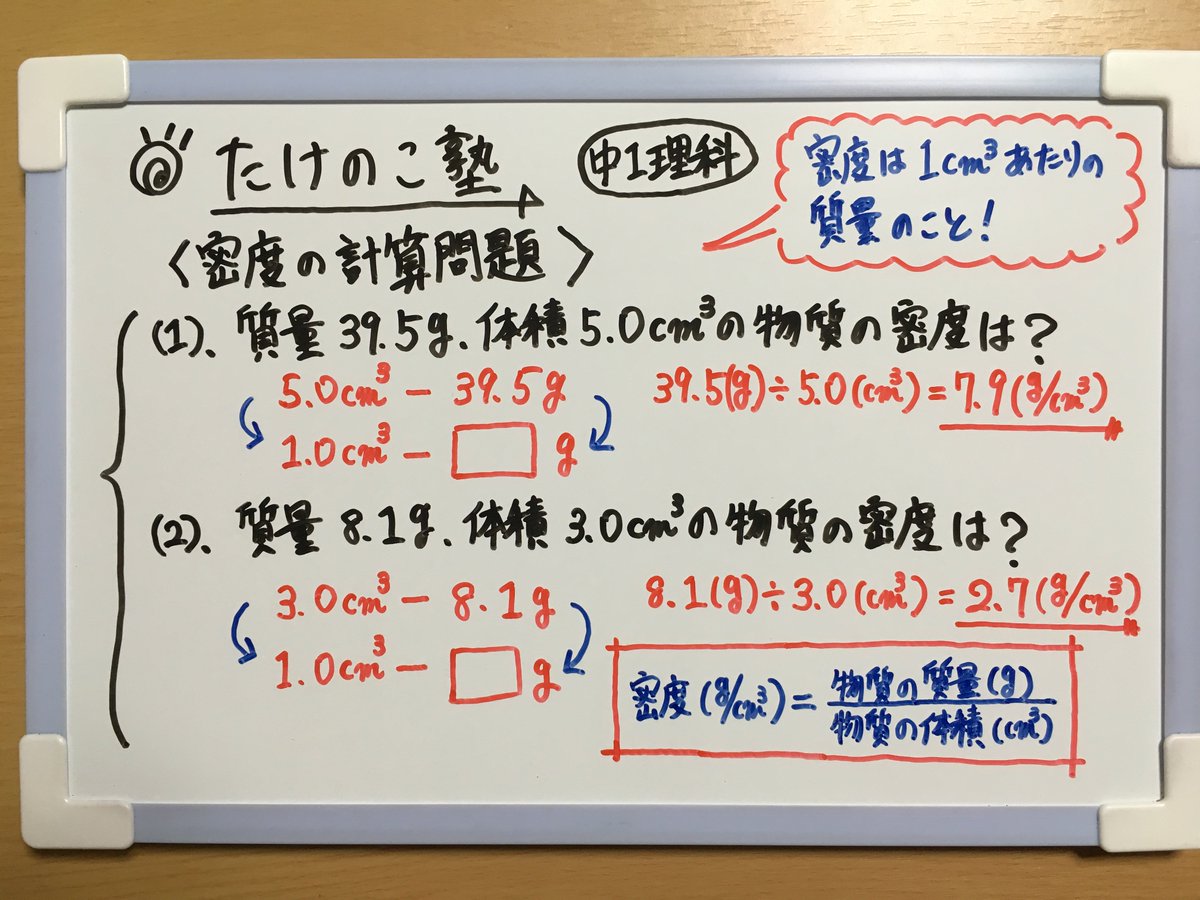 たけのこ塾
中1理科
密度は1cm³あたりの
質量のこと!
〈密度の計算問題〉
(1)、質量39.5g、体積5.0cm³の物質の密度は?
5.0cm³ − 39.5g
39.5(g)÷5.0(cm³)=7.9(g/cm³)
1.0cm³ − □ g
(2)、質量8.1g、体積3.0cm³の物質の密度は?
3.0cm³ − 8.1g
8.1(g)÷3.0(cm³)=2.7(g/cm³)
1.0cm³ − □ g
密度(g/cm³)=
物質の質量(g)
物質の体積(cm³)